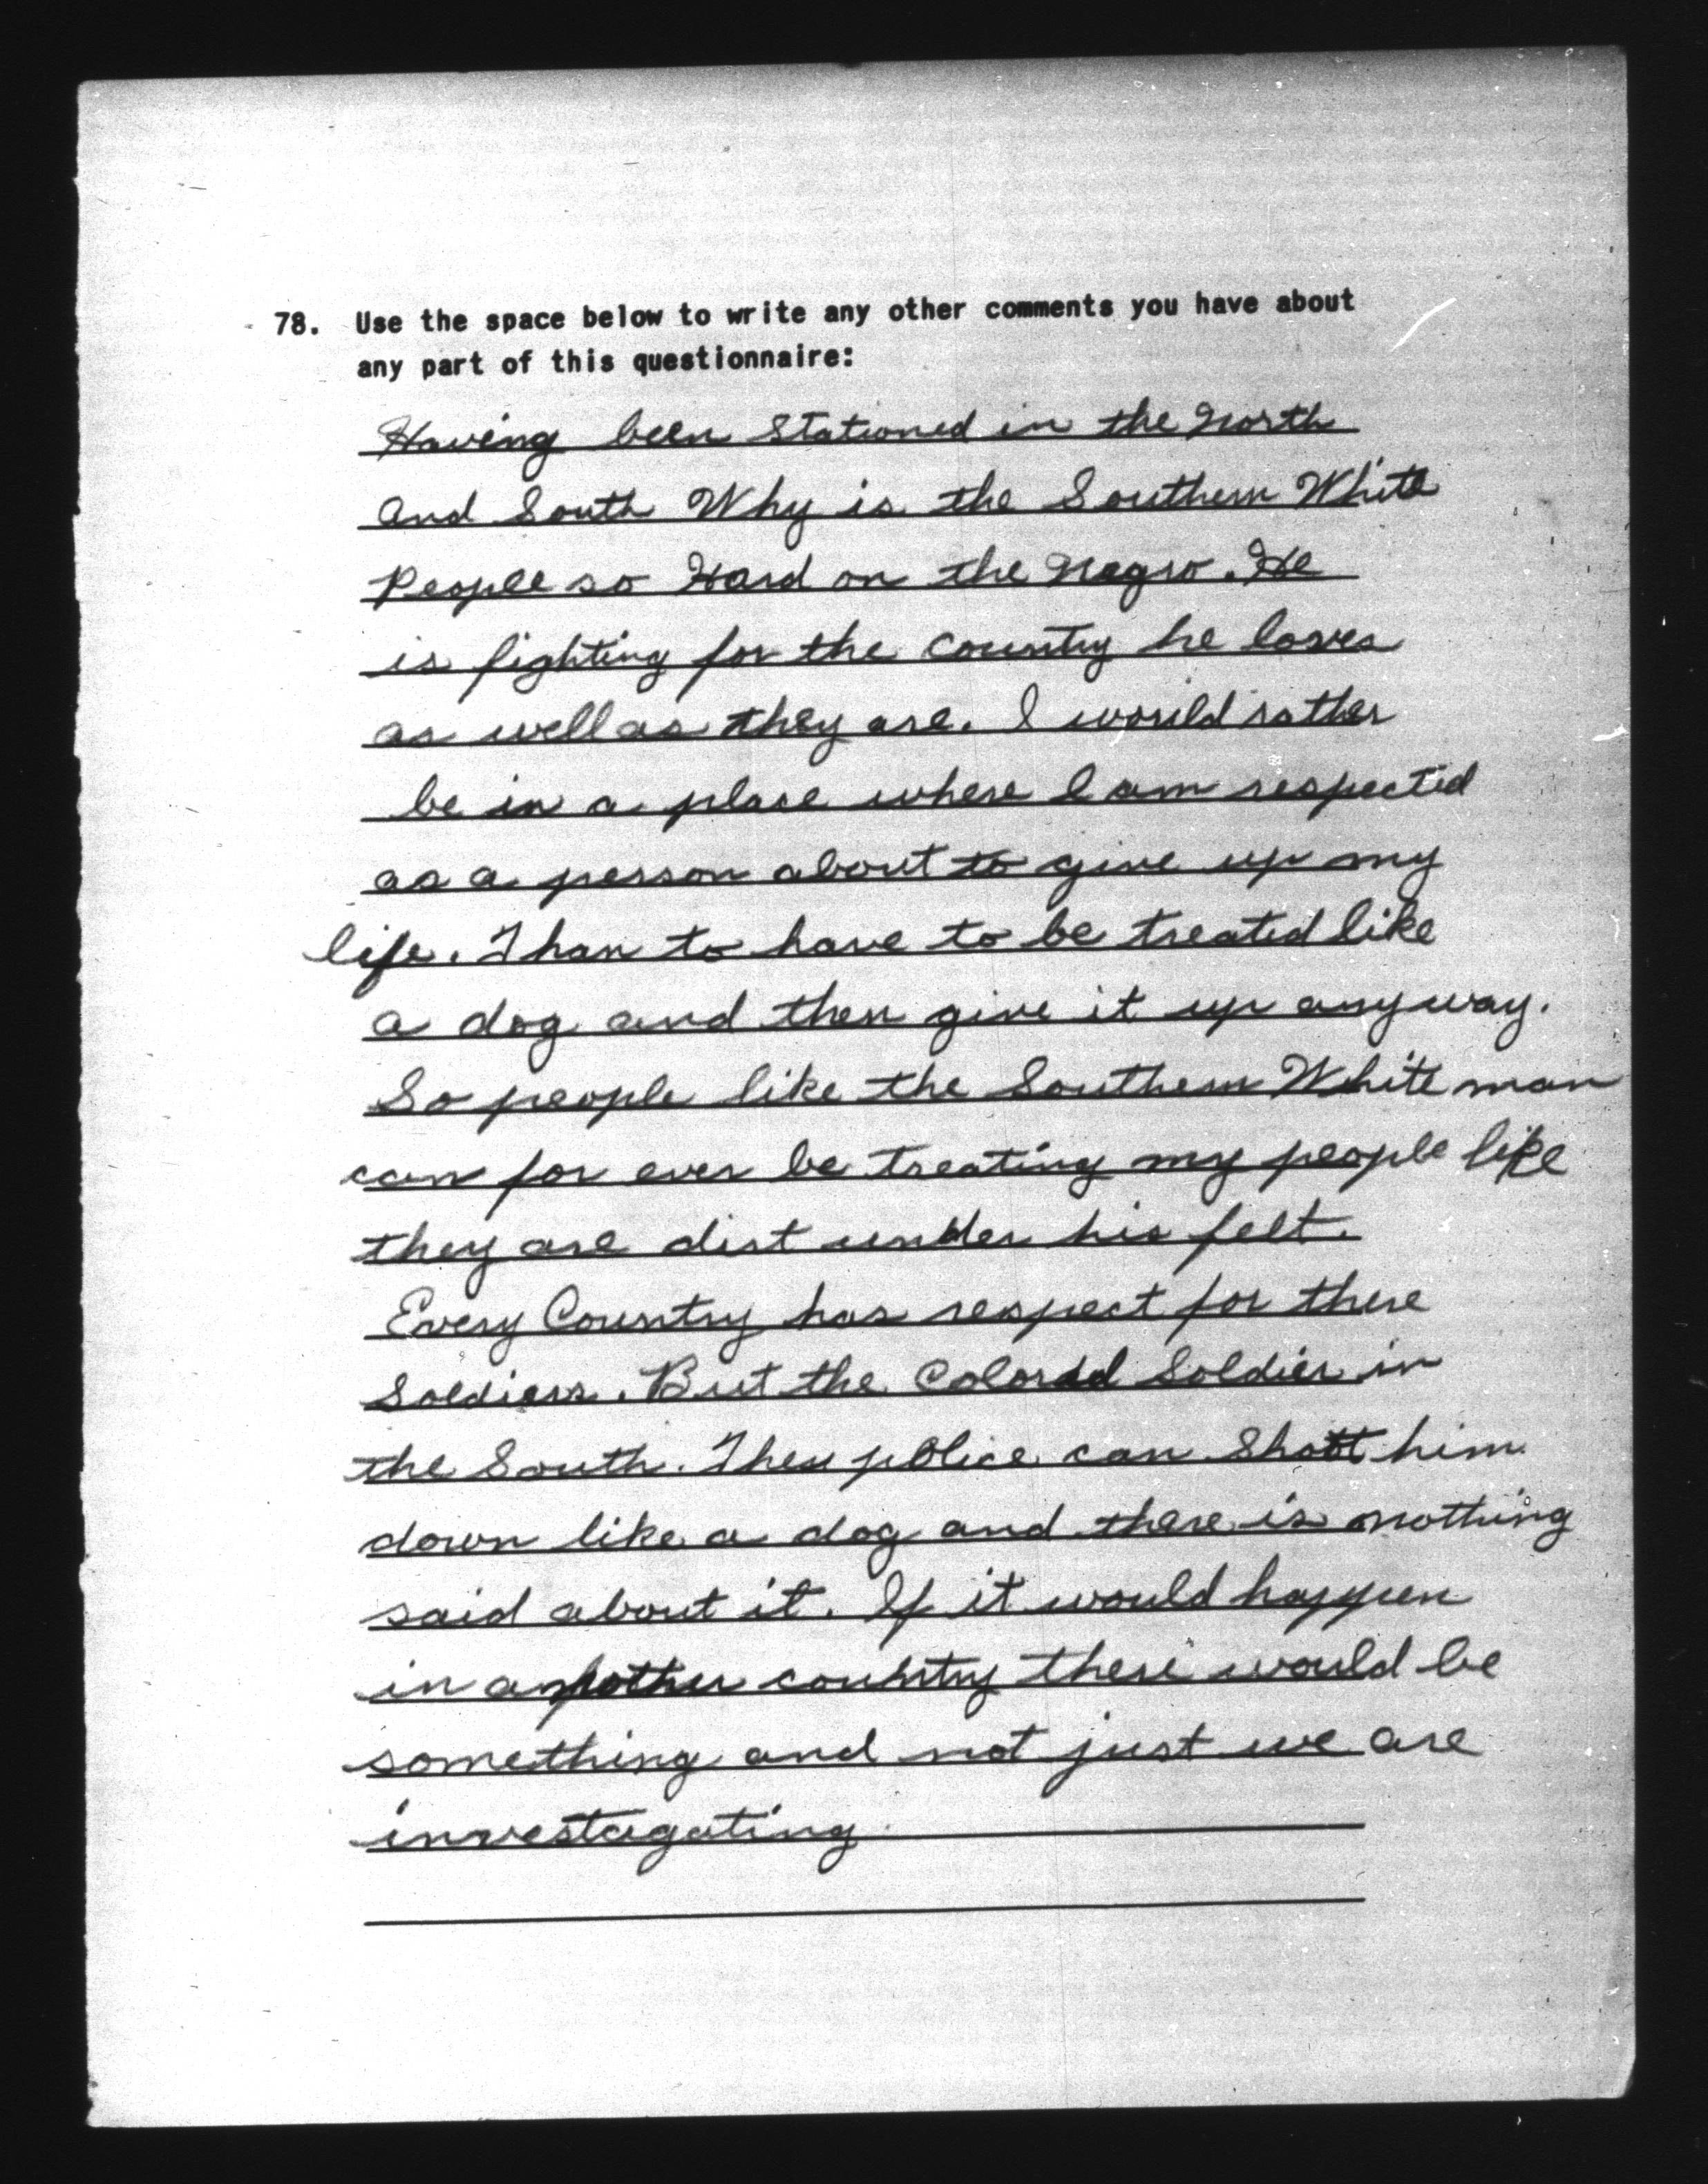 78. Use the space below to write any other comments you have about
any part of this questionnaire:
Having been Stationed in the North
and South Why is the Southern White
People so Hard on the Negro. He
is fighting for the country he loves
as well as they are. I would rather
be in a place where I am respected
as a person about to give up my
life. Than to have to be treated like
a dog and then give it up anyway.
So people like the Southern White man
can for ever be treating my people like
they are dirt under his felt.
Every Country has respect for there
Soldiers. But the Colored Soldier in
the South. Then police can Shott him
down like a dog and there is nothing
said about it. If it would happen
in another country there would be
something and not just we are
investagating.